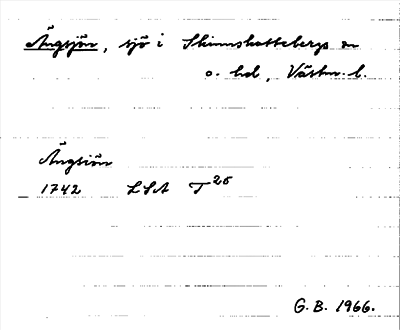 Ängsjön, sjö i Skinnskattebergs sn
o. hd, Västm. l.
Ängsiön
1742 LSA T 26
G. B. 1966.